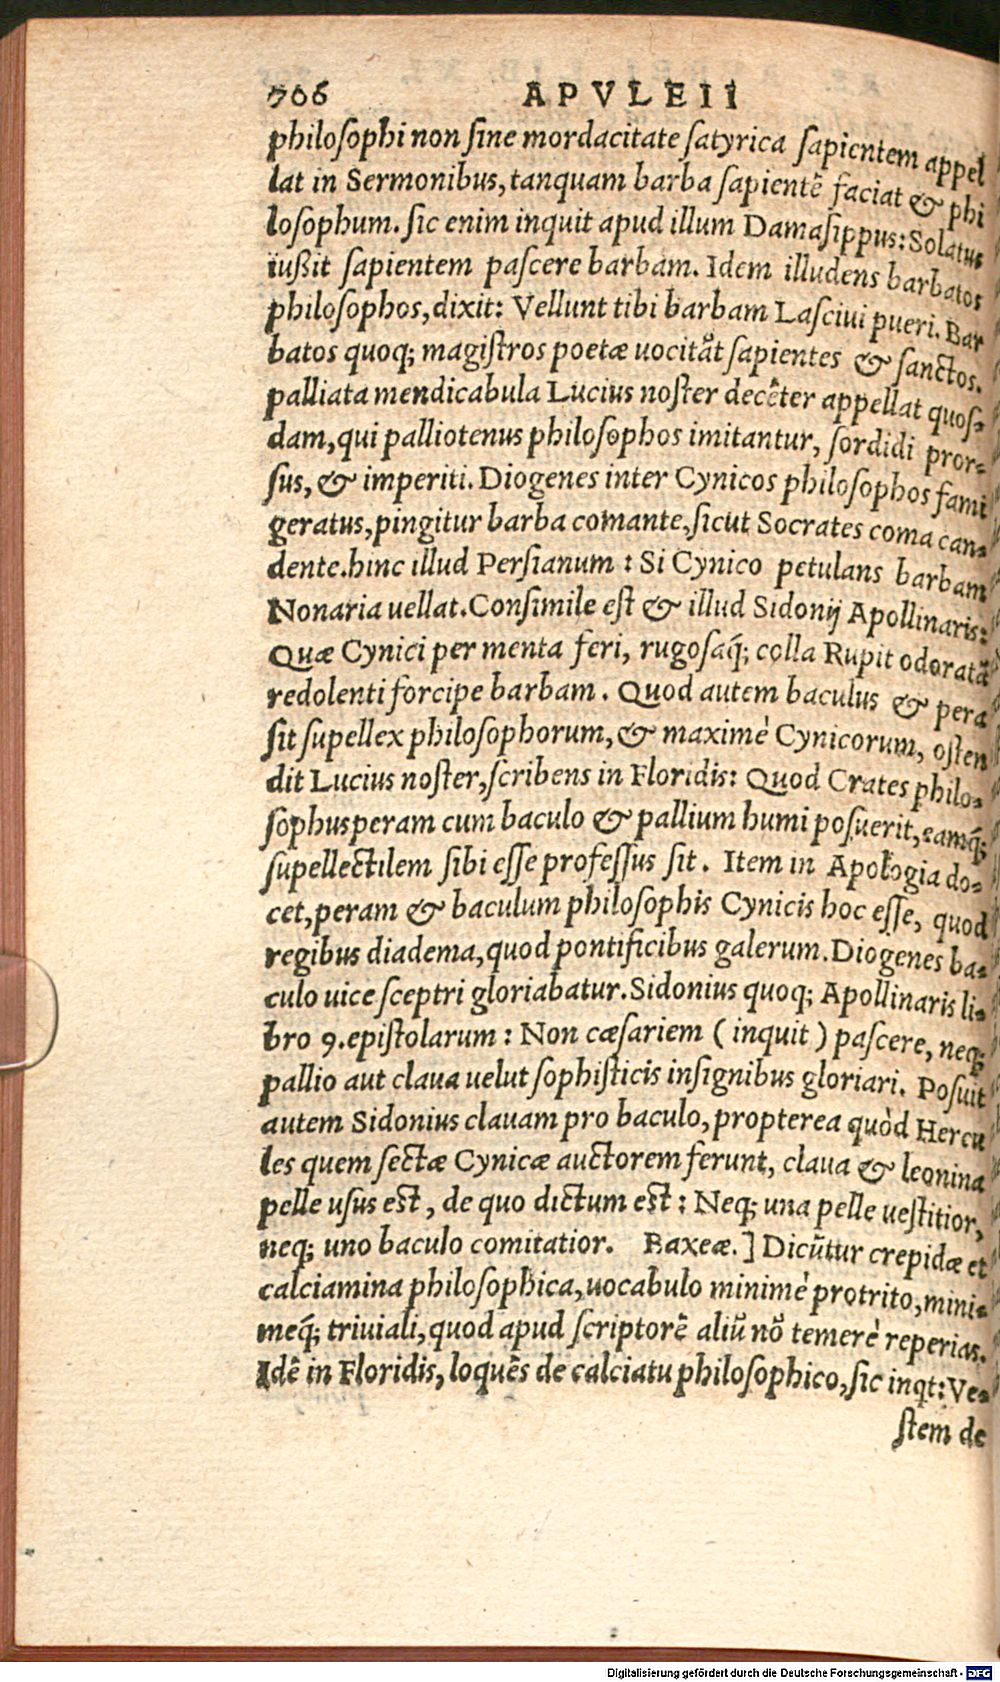 706 APVLEII
philosophi non sine mordacitate satyrica sapientem appel
lat in Sermonibus, tanquam barba sapientẽ faciat & phi
losophum. sic enim inquit apud illum Damasippus: Solatus
iußit sapientem pascere barbam. Idem illudens barbatos
philosophos, dixit: Vellunt tibi barbam Lasciui pueri. Bar
batos quoq; magistros poetæ uocitãt sapientes & sanctos.
palliata mendicabula Lucius noster decẽter appellat quos-
dam, qui palliotenus philosophos imitantur, sordidi pror-
sus, & imperiti. Diogenes inter Cynicos philosophos fami
geratus, pingitur barba comante, sicut Socrates coma can-
dente. hinc illud Persianum : Si Cynico petulans barbam
Nonaria uellat. Consimile est & illud Sidonij Apollinaris:
Quæ Cynici per menta feri, rugosaq́; colla Rupit odoratã
redolenti forcipe barbam. Quod autem baculus & pera
sit supellex philosophorum, & maximè Cynicorum, osten
dit Lucius noster, scribens in Floridis: Quod Crates philo-
sophus peram cum baculo & pallium humi posuerit, eamq́;
supellectilem sibi esse professus sit. Item in Apologia do-
cet, peram & baculum philosophis Cynicis hoc esse, quod
regibus diadema, quod pontificibus galerum. Diogenes ba-
culo uice sceptri gloriabatur. Sidonius quoq; Apollinaris li-
bro 9. epistolarum : Non cæsariem ( inquit ) pascere, neq;
pallio aut claua uelut sophisticis insignibus gloriari. Posuit
autem Sidonius clauam pro baculo, propterea quòd Hercu
les quem sectæ Cynicæ auctorem ferunt, claua & leonina
pelle usus est, de quo dictum est : Neq; una pelle uestitior,
neq; uno baculo comitatior. Baxeæ.] Dicũtur crepidæ et
calciamina philosophica, uocabulo minimè protrito, mini-
meq́; triuiali, quod apud scriptorẽ aliũ nõ temerè reperias.
Idẽ in Floridis, loquẽs de calciatu philosophico, sic inqt: Ve-
stem de
Digitalisierung gefördert durch die Deutsche Forschungsgemeinschaft - DFG